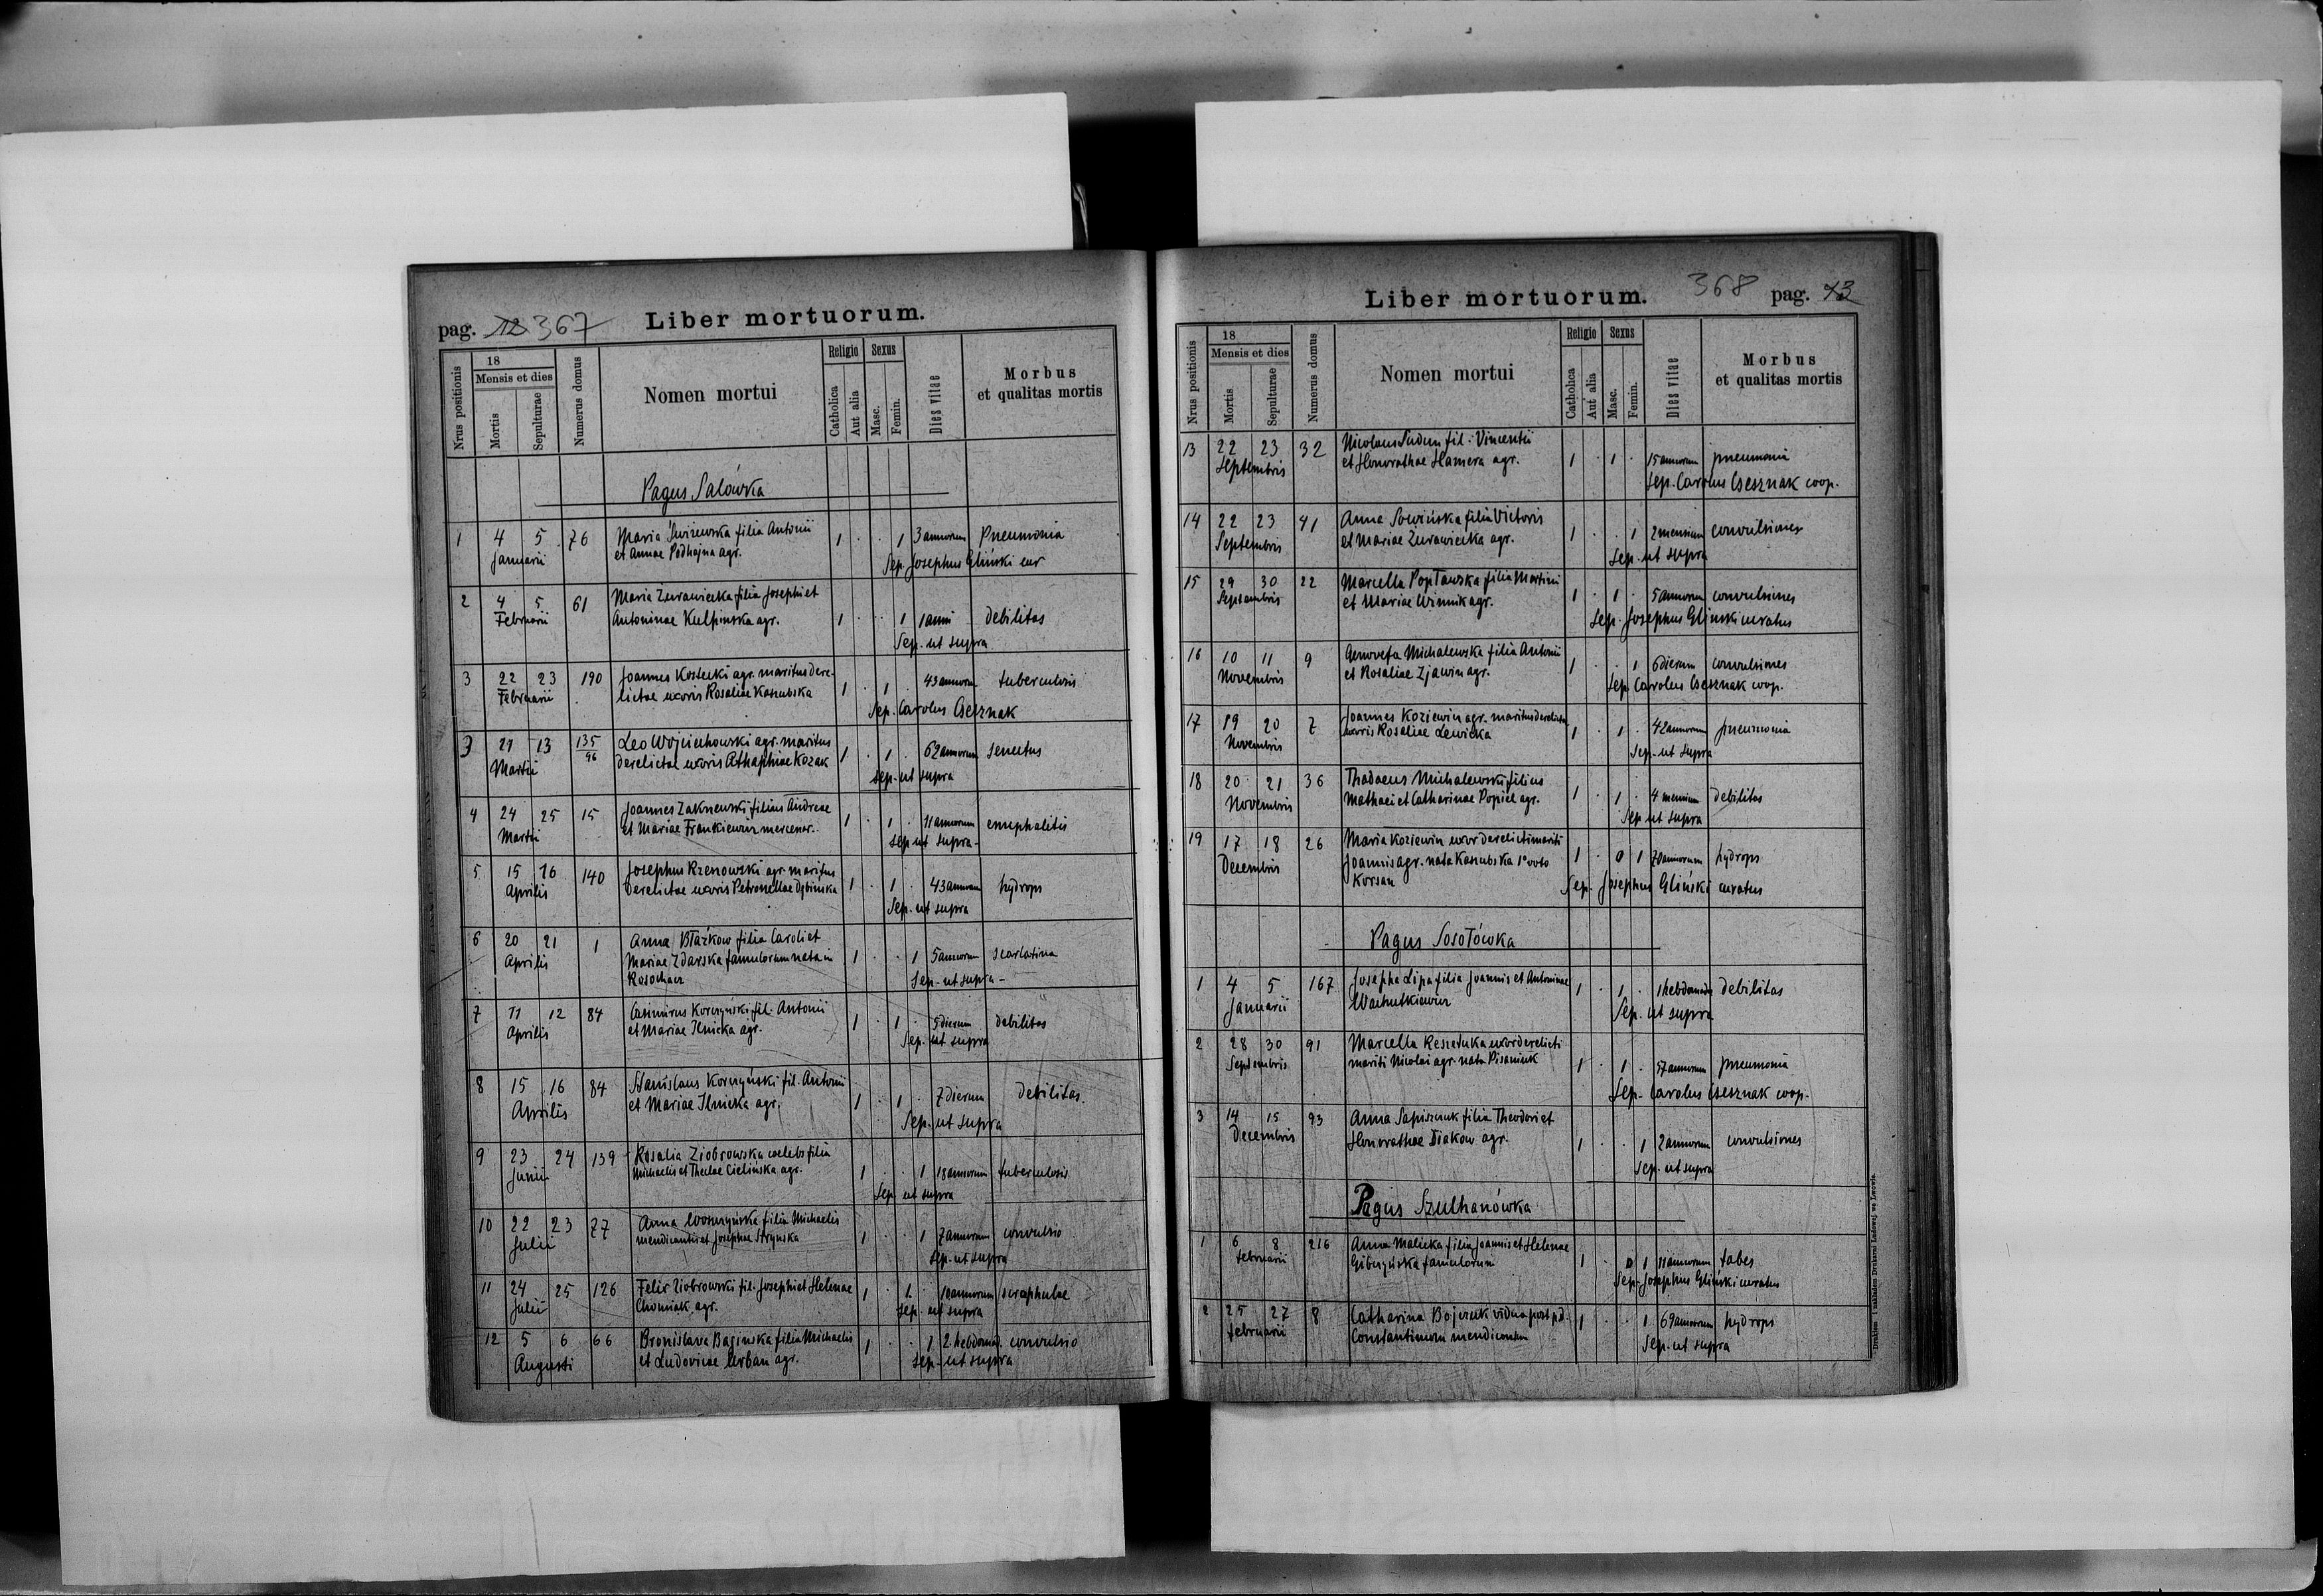 pag. 12 367 Liber mortuorum.
Nrus positionis
18
Mensis et dies
Mortis
Sepulturae
Numerus domus
Nomen mortui
Religio
Catholica
Aut alia
Sexus
Masc.
Femin.
Dies vitae
Morbus
et qualitas mortis
Pagus Salówka
1 4 5 76 Maria filia Antonii 1 . . 1 3 annorum Pneumonia
Januarii et Annae Podhajna agr.
Sep. Josephus Gliński cur
2 4 5 61 Maria Żurawiecka filia Josephi et
Februarii Antoninae Kulpinska agr. 1 . . 1 1 anni debilitas
Sep. ut supra
3 22 23 190 Joannes Kostecki agr. maritus dere-
Februarii lictae uxoris Rosaliae Kaszubska 1 . 1 . 43 annorum tuberculosis
Sep. Carolus Csesznak
3 21 13 135/96 Leo Wojciechowski agr. maritus
Martii derelictae uxoris Athaphiae Kozak 1 . 1 . 62 annorum senectus
Sep. ut supra
4 24 25 15 Joannes Zakrzewski filius Andreae
Martii et Mariae Frankiewicz mercenar. 1 . 1 . 11 annorum encephalitis
Sep. ut supra -
5 15 16 140 Josephus Rzenowski agr. maritus
Aprilis derelictae uxoris Petronellae Dębinska 1 . 1 . 43 annorum hydrops
Sep. ut supra
6 20 21 1 Anna Błażkow filia Caroli et
Aprilis Mariae Zdarska famulorum nata in 1 . . 1 5 annorum scarlatina
Rosochacz Sep. ut supra -
7 11 12 84 Casimirus Korczynski fil. Antonii
Aprilis et Mariae Ilnicka agr. 1 . 1 . 5 dierum debilitas
Sep. ut supra
8 15 16 84 Stanislaus Korczyński fil. Antonii
Aprilis et Mariae Ilnicka agr. 1 . 1 . 7 dierum debilitas.
Sep. ut supra
9 23 24 139 Rosalia Ziobrowska coelebs filia
Junii Michaelis et Theclae Cielinska agr. 1 . . 1 18 annorum tuberculosis
Sep. ut supra
10 22 23 77 Anna filia Michaelis
Julii mendicantis et Josephae Strynska 1 . . 1 7 annorum convulsio
Sep. ut supra
11 24 25 126 Felix Ziobrowski fil. Josephi et Helenae
Julii Chomiak agr. 1 . 1 . 10 annorum scrophulae
Sep. ut supra
12 5 6 66 Bronislava Baginska filia Michaelis
Augusti et Ludovicae Urban agr. 1 . . 1 2 hebdomad. convulsio
Sep. ut supra
Liber mortuorum. 368 pag. 13
Nrus positionis
18
Mensis et dies
Mortis
Sepulturae
Numerus domus
Nomen mortui
Religio
Catholica
Aut alia
Sexus
Masc.
Femin.
Dies vitae
Morbus
et qualitas mortis
13 22 23 32 Nicolaus Sudun fil. Vincentii
Septembris et Honorathae Hamera agr. 1 . 1 . 15 annorum pneumonia
Sep. Carolus Csesznak coop.
14 22 23 41 Anna Sowińska filia Victoris
Septembris et Mariae Żurawiecka agr. 1 . . 1 2 mensium convulsiones
Sep. ut supra
15 29 30 22 Marcella Popławska filia Martini
Septembris et Mariae Winnik agr. 1 . 1 . 5 annorum convulsiones
Sep. Josephus Gliński curatus
16 10 11 9 Genovefa Michalewska filia Antonii
Novembris et Rosaliae Zjawin agr. 1 . . 1 6 dierum convulsiones
Sep. Carolus Csesznak coop.
17 19 20 7 Joannes Koziewin agr. maritus derelictae
Novembris uxoris Rosaliae Lewicka 1 . 1 . 42 annorum pneumonia
Sep. ut supra
18 20 21 36 Thadaeus Michalewski filius
Novembris Mathaei et Catharinae Popiel agr. 1 . 1 . 4 mensium debilitas
Sep. ut supra
19 17 18 26 Maria Koziewin uxor derelicti mariti
Decembris Joannis agr. nata Kaszubska 1° voto 1 . 0 1 70 annorum hydrops
Korsan Sep. Josephus Gliński curatus
Pagus Sosołówka
1 4 5 167 Josepha Lipa filia Joannis et Antoninae
Januarii 1 . 1 . 1 hebdomadis debilitas
Sep. ut supra
2 28 30 91 Marcella Reszetuka uxor derelicti
Septembris mariti Nicolai agr. nata Pisaniuk 1 . 1 . 57 annorum pneumonia
Sep. Carolus Csesznak coop.
3 14 15 93 Anna Sapiszczuk filia Theodori et
Decembris Honorathae Diakow agr. 1 . . 1 2 annorum convulsiones
Sep. ut supra
Pagus Szulhanówka
1 6 8 216 Anna Malicka filia Joannis et Helenae
Februarii Gibczyńska famulorum 1 . 0 1 11 annorum tabes
Sep. Josephus Gliński curatus
2 25 27 8 Catharina Bojczuk vidua post p.d.
Februarii Constantinum mendicantem 1 . . 1 69 annorum hydrops
Sep. ut supra
Drukiem i nakładem Drukarni Ludowej we Lwowie.